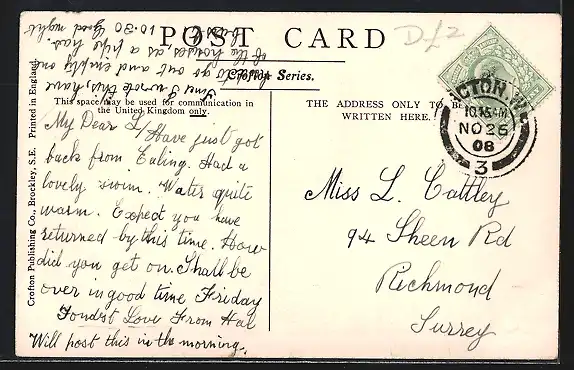 POST CARD
Crofton Series.
This space may be used for communication in
the United Kingdom only.
THE ADDRESS ONLY TO BE
WRITTEN HERE.
Printed in England.
Crofton Publishing Co., Brockley, S.E.
D £2
ACTON. W.
10.15 AM
NO 25
08
3
My Dear L/
Have just got
back from Ealing. Had a
lovely swim. Water quite
warm. Expect you have
returned by this time. How
did you get on. Shall be
over in good time Friday
Fondest Love From Hal
Will post this in the morning.
Since I wrote this, have
had to go out and empty one
of the houses, as a pipe has
burst. 10.30 Good night
Miss L. Cattley
94 Sheen Rd
Richmond
Surrey